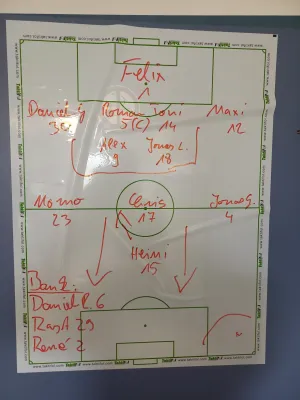 Felix
1
Daniel G. Roman Toni Maxi
5(C) 14 12
Alex Jonas L.
9 18
Momo Chris Jonas G.
23 17 4
Henni
15
Bank:
Daniel R. 6
Rast 29
René 2